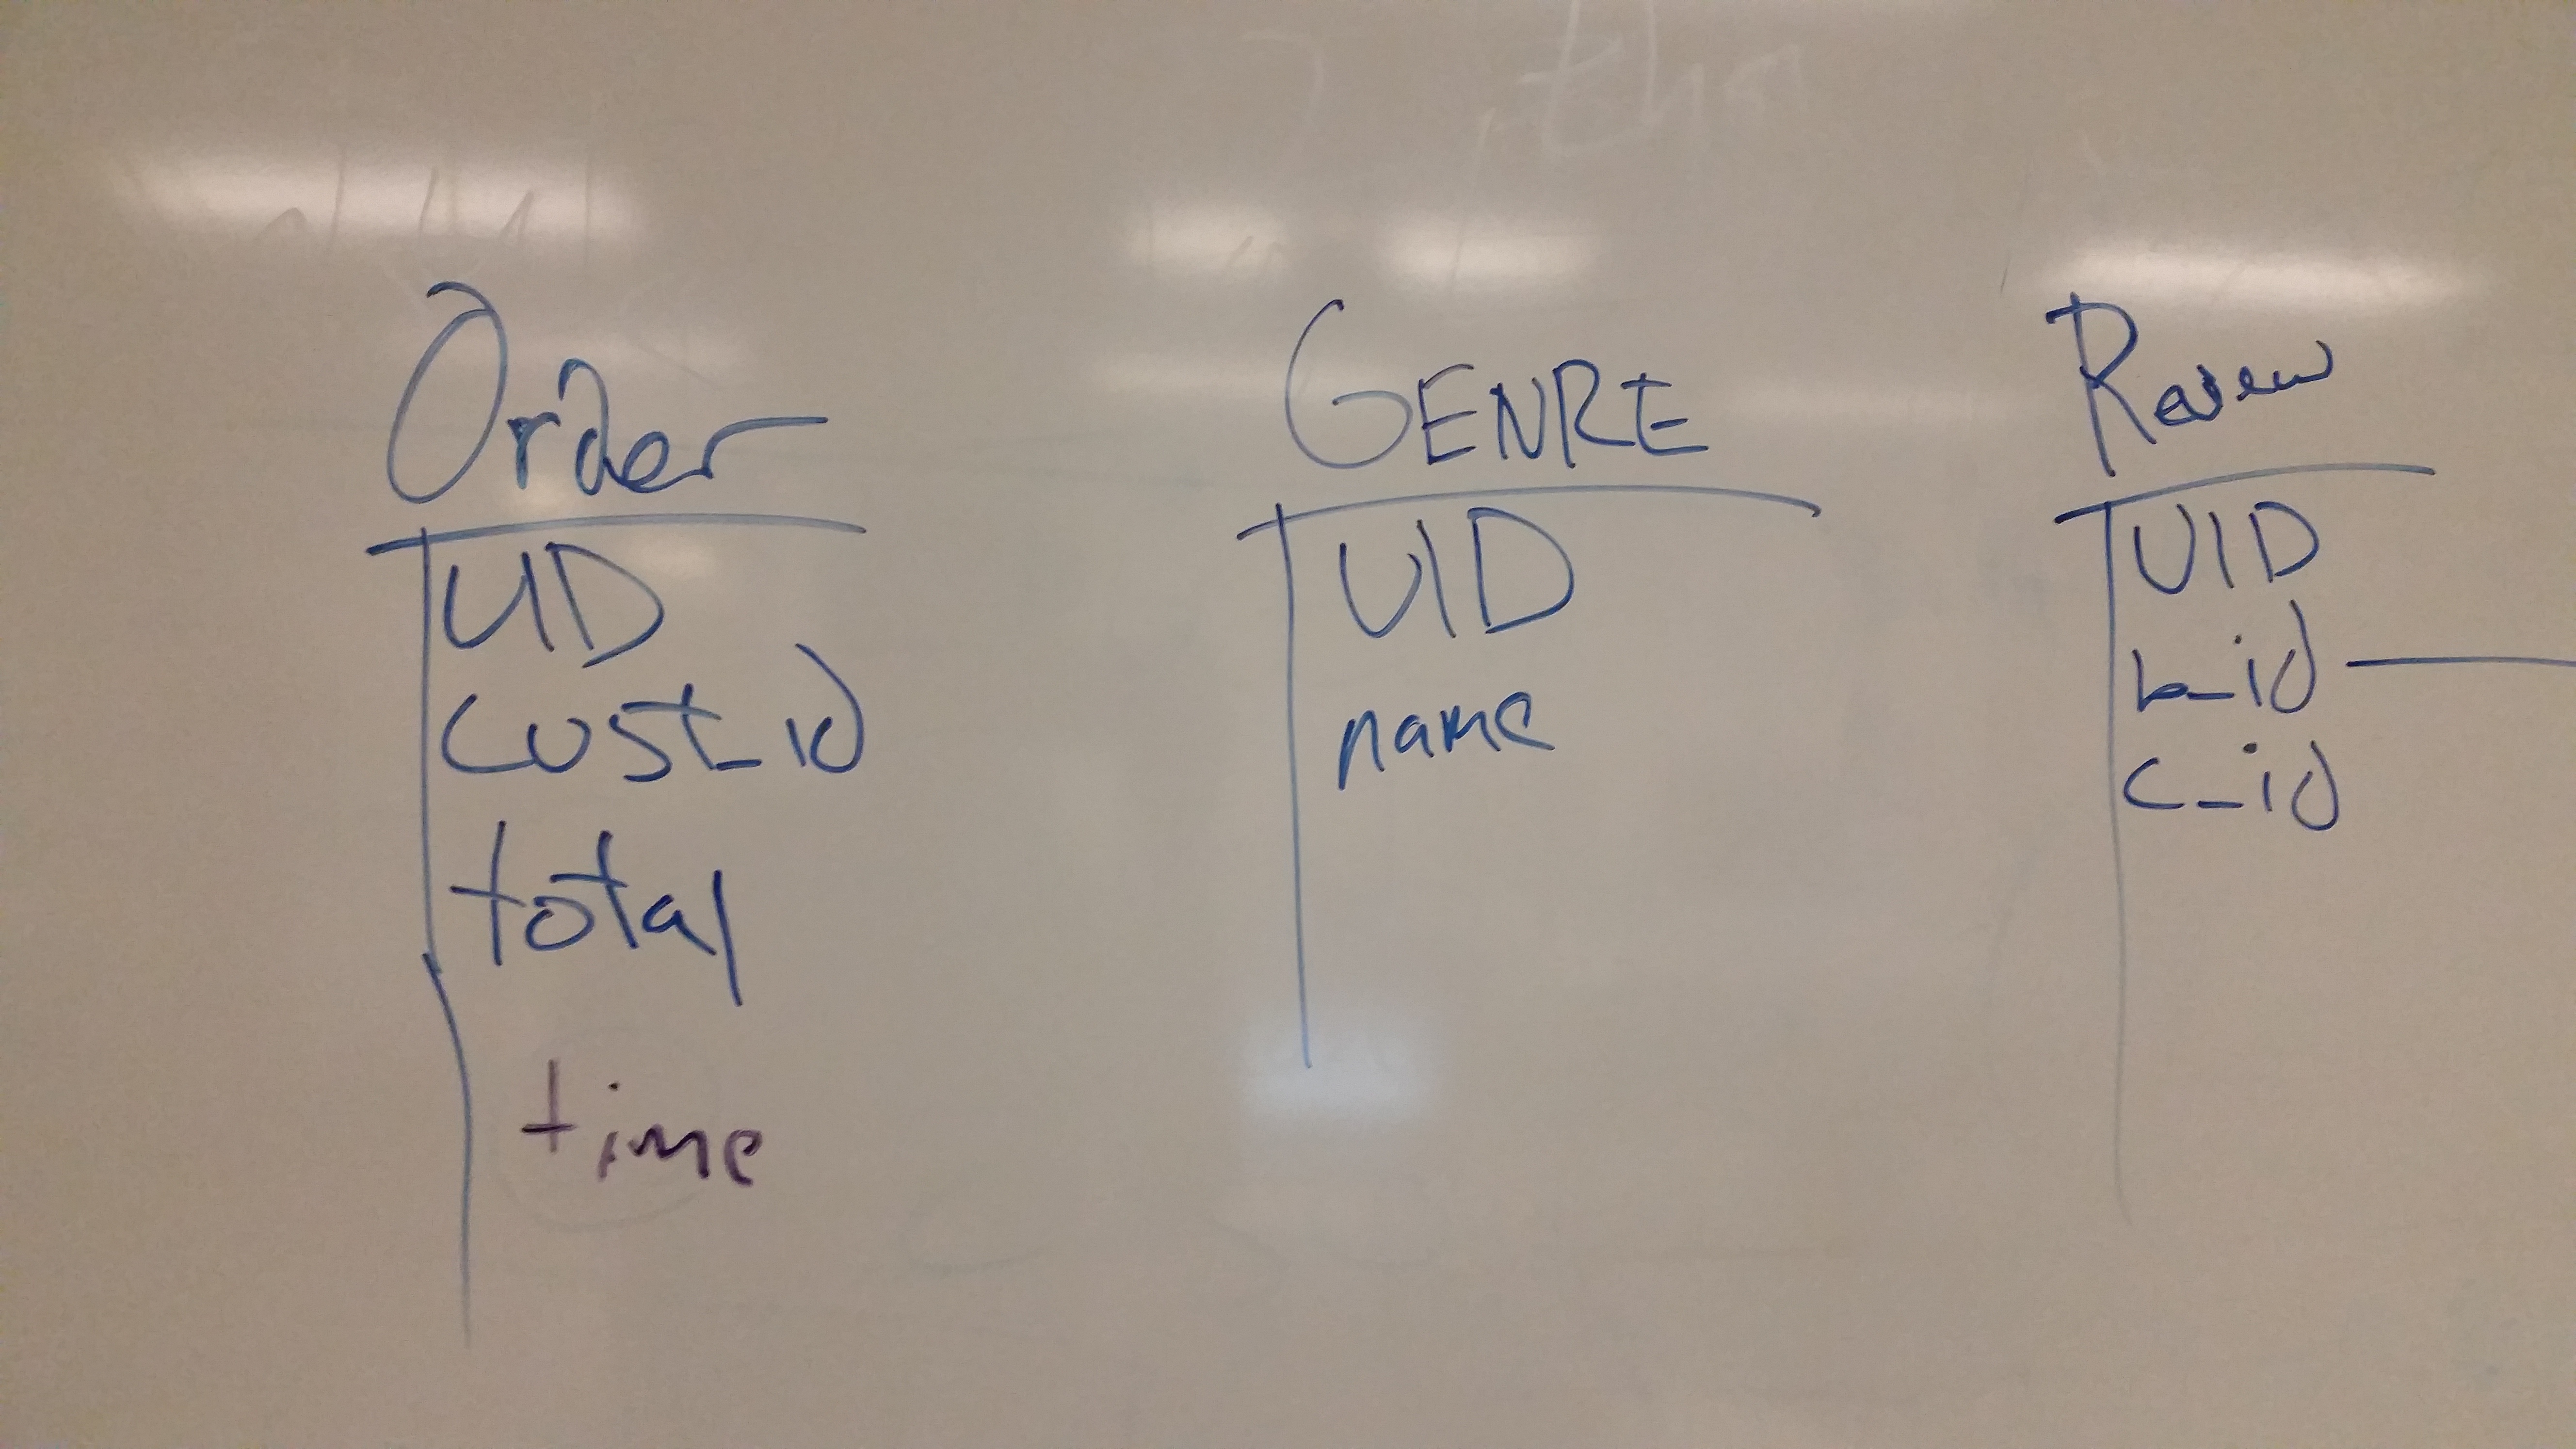 Order
UID
cust_id
total
time
GENRE
UID
name
Review
UID
b_id
c_id